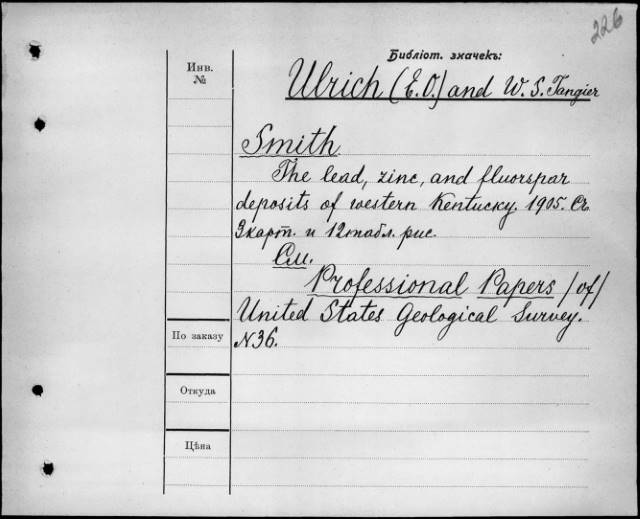 226
Библіот. значекъ:
Инв.
№
Ulrich (E.O.) and W. S. Tangier
Smith
The lead, zinc, and fluorspar
deposits of western Kentucky. 1905. Съ
3 карт. и 12 табл. рис.
См.
Professional Papers /of/
United States Geological Survey.
N 36.
По заказу
Откуда
Цѣна